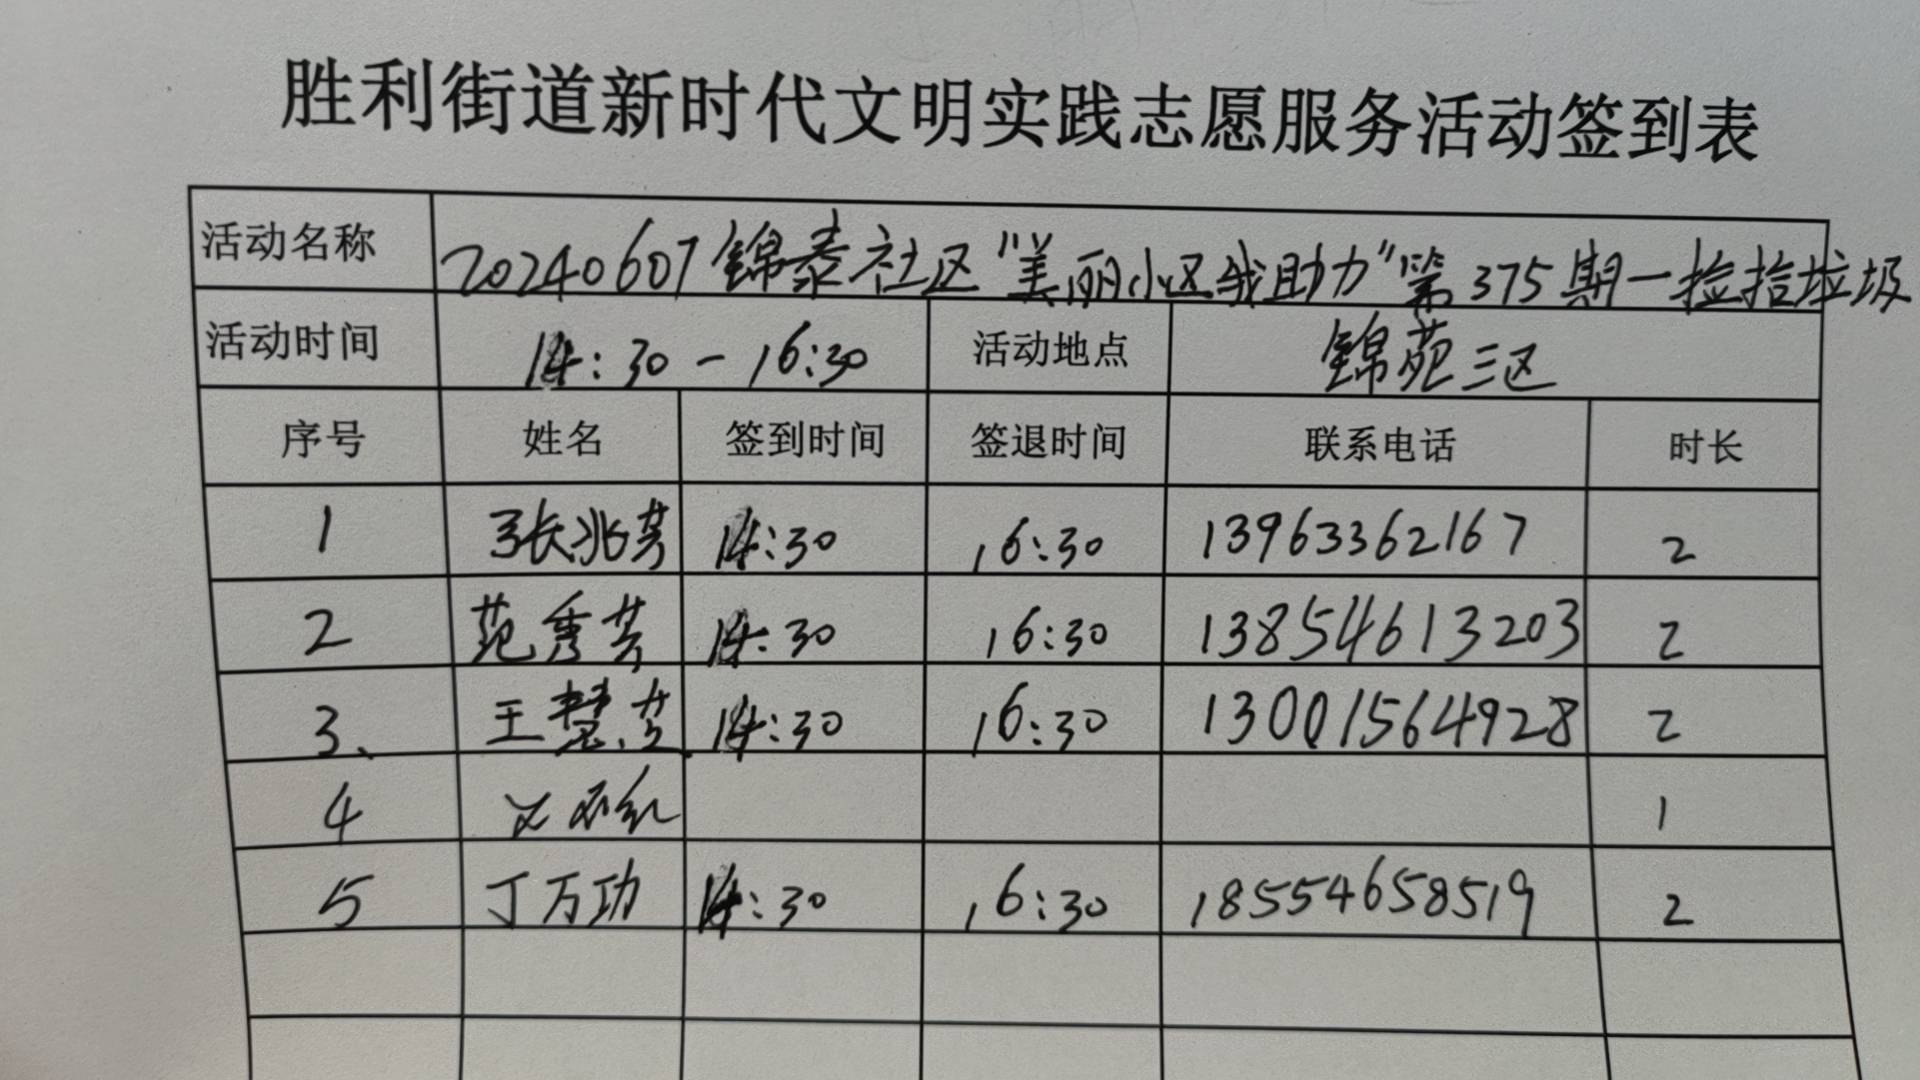 胜利街道新时代文明实践志愿服务活动签到表
活动名称 20240607锦泰社区“美丽小区我助力”第375期一捡拾垃圾
活动时间 14:30-16:30 活动地点 锦苑三区
序号 姓名 签到时间 签退时间 联系电话 时长
1 张兆芳 14:30 16:30 13963362167 2
2 范秀芳 14:30 16:30 13854613203 2
3、 王慧芝 14:30 16:30 13001564928 2
4 1
5 丁万功 14:30 16:30 18554658519 2